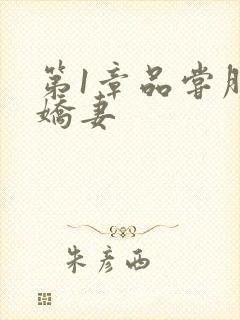 第1章品尝
娇妻
朱彦西